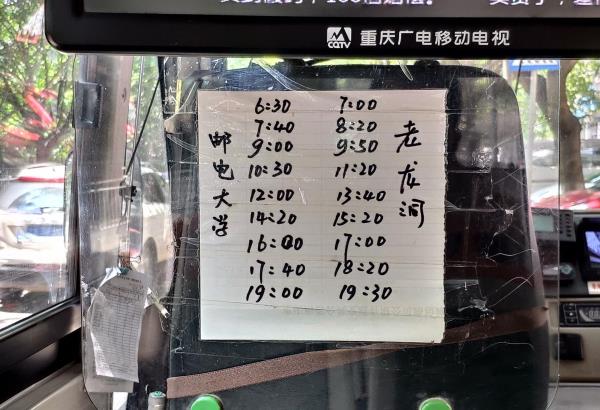 CQTV 重庆广电移动电视
邮电大学
老龙洞
6:30 7:00
7:40 8:20
9:00 9:50
10:30 11:20
12:00 13:40
14:20 15:20
16:00 17:00
17:40 18:20
19:00 19:30